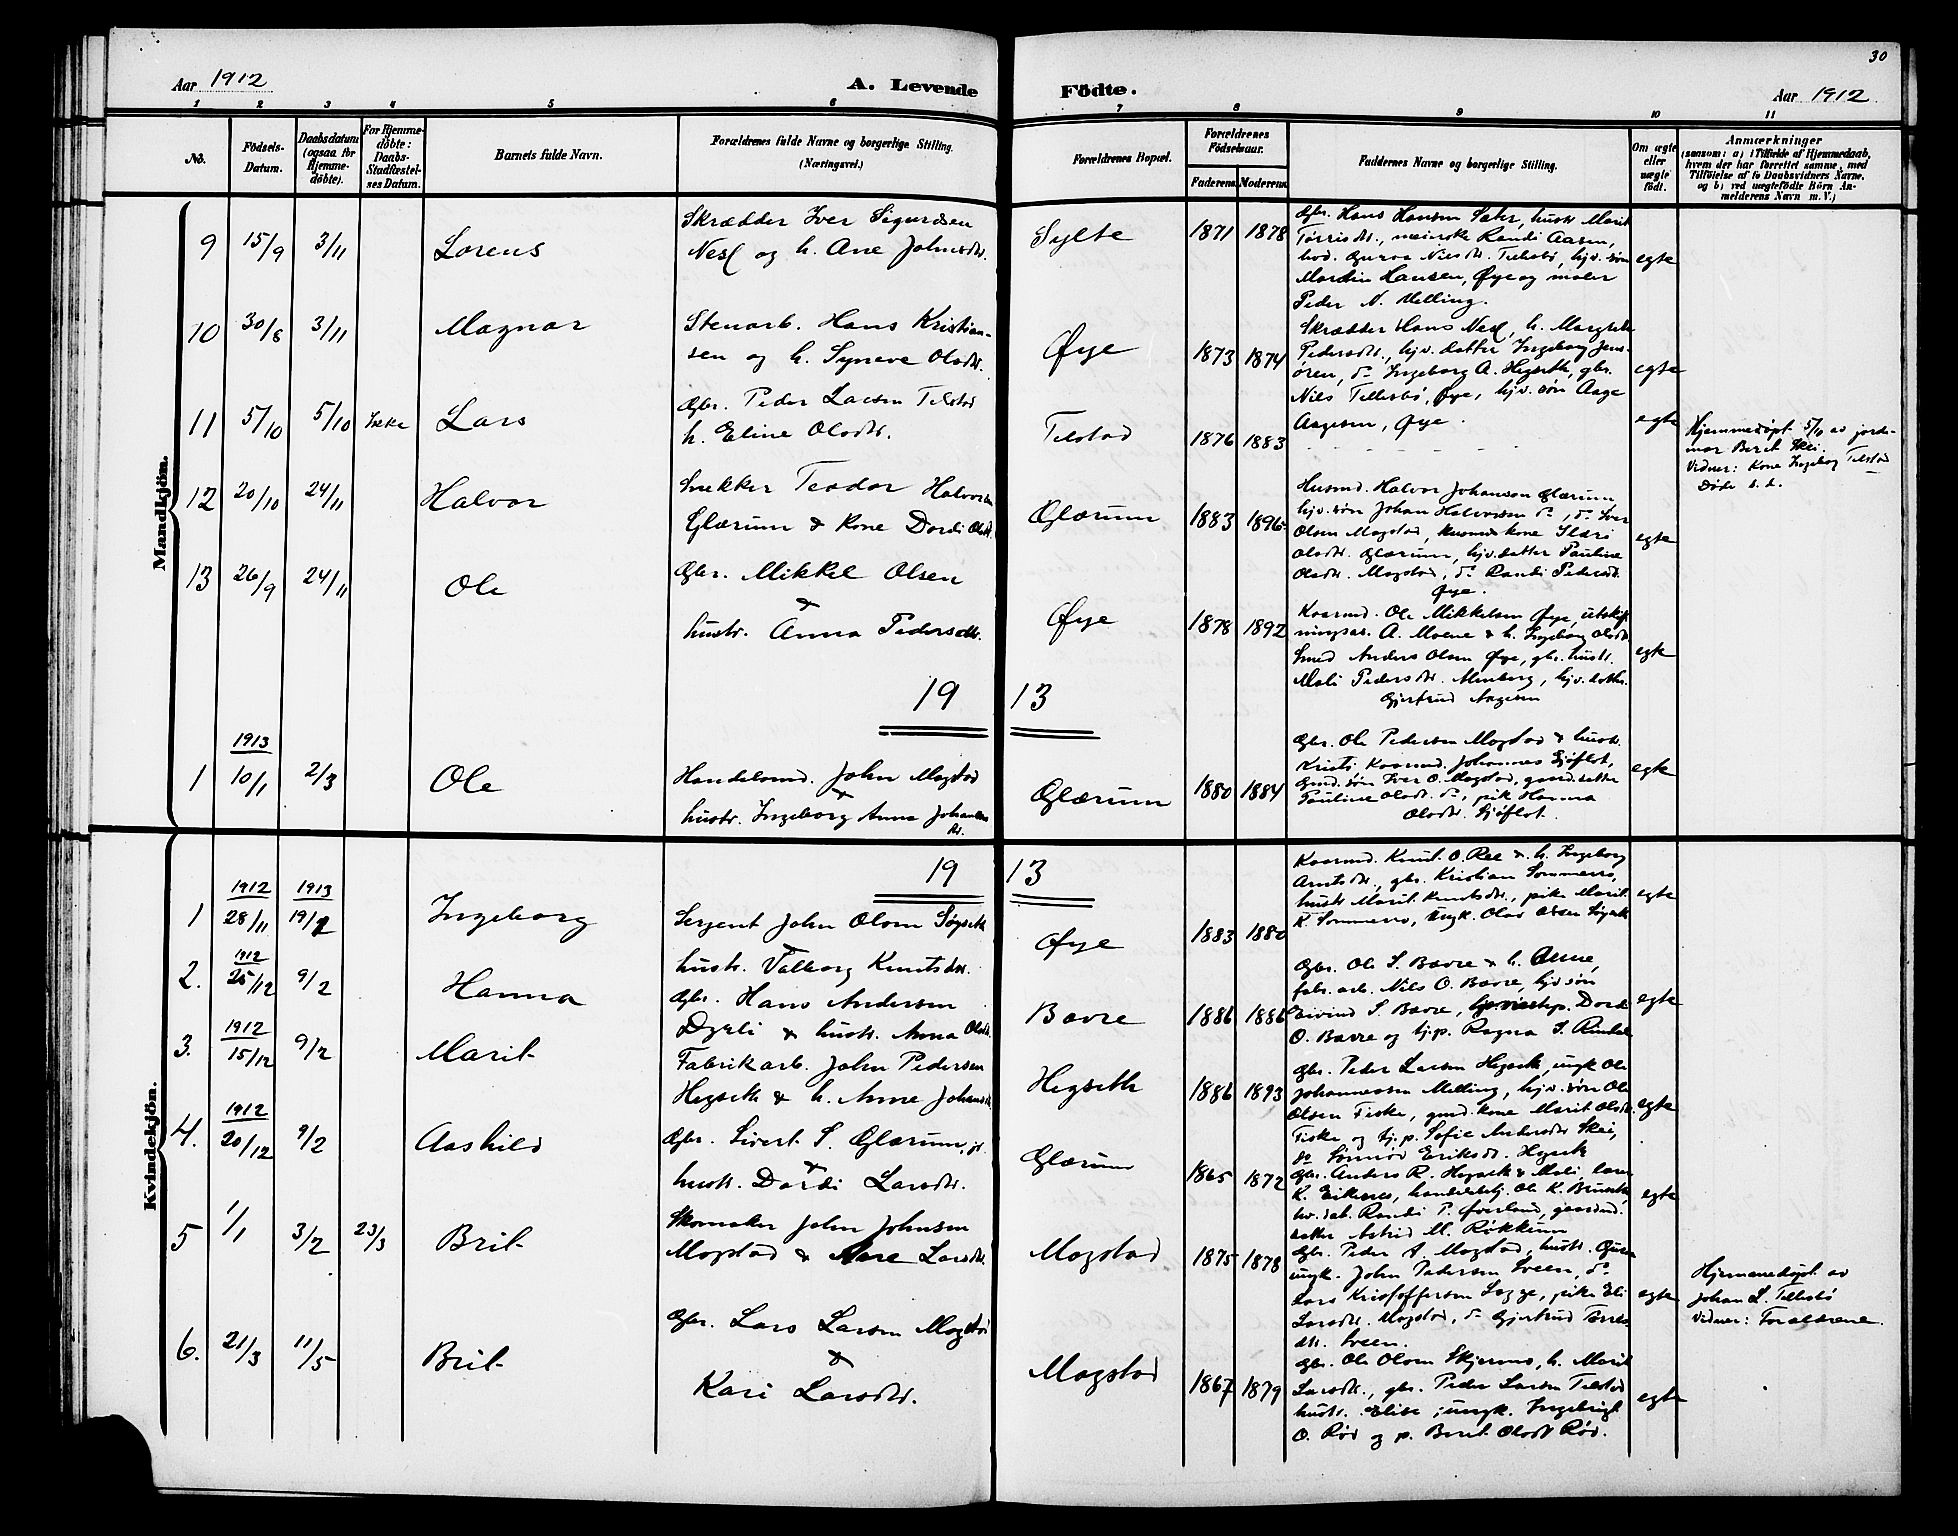 30
Aar 1912
A. Levende
Födte.
Aar 1912
1 2 3 4 5 6 7 8 9 10 11
No.
Födsels-
Datum.
Daabsdatum
(ogsaa for
Hjemme-
döbte).
For Hjemme-
döbte:
Daabs-
Stadfæstel-
ses Datum.
Barnets fulde Navn.
Forældrenes fulde Navne og borgerlige Stilling.
(Næringsvei.)
Forældrenes Bopæl.
Forældrenes
Födselsaar.
Faderens Moderens
Faddernes Navne og borgerlige Stilling.
Om ægte
eller
uægte
födt.
Anmærkninger
(saasom: a) i Tilfælde af Hjemmedaab,
hvem der har forrettet samme, med
Tilföielse af to Daabsvidners Navne,
og b) ved uægtefödte Börn An-
melderens Navn m. V.)
Mandkjön.
9 15/9 3/11 Lorens
Skrædder Iver Sigurdsen
Nesl og h. Ane Johnsdtr.
Sylte 1871 1878
Gbr. Hans Hansen Sæter, hustr Marit
Tørrisdtr., meierske Randi Aasen,
bud. Guroa Nilsdtr. Tellesbø, hjv. søn
Martin Hansen, Øye og maler
Peder N. Melling.
egte
10 30/8 3/11 Magnar
Stenarb. Hans Kristian-
sen og h. Synøve Olsdtr.
Øye 1873 1874
Skrædder Hans Nesl, h. Margrete
Pedersdtr., hjv. datter Ingeborg Jens-
ören, do Ingeborg A. Hegseth, gbr.
Nils Tellesbø, Øye, hjv. søn Aage
Aagesen, Øye.
egte
11 5/10 5/10 Ikke Lars
Gbr. Peder Larsen Telstad
h. Eline Olsdtr.
Telstad 1876 1883
egte
Hjemmedøpt 5/10 av jord-
mor Berit Skei
Vidner: Kone Ingebog Telstad
Døde s. d.
12 20/10 24/11 Halvor
Snekker Teodor Halvorsen
Glærum & Kone Dordi Olsdtr.
Glærum 1883 1896
Husmd. Halvor Johansen Glærum
hjv. søn Johan Halvorsen do, do Iver
Olsen Magstad, husmds kone Sldri
Olsdtr. Glærum, hjv. datter Pauline
Olsdtr. Magstad, do Randi Pedersdtr.
Øye.
egte
13 26/9 24/11 Ole
Gbr. Mikkel Olsen
&
hustr. Anna Pedersdtr.
Øye 1878 1892
Kaarmd. Ole Mikkelsen Øye, utskift-
ningsas. A. Moene & h. Ingeborg Olsdtr
Smed Anders Olsen Øye, gbr. hustr.
Mali Pedersdtr. Almberg, hjv. datter.
Gjertrud Aagesen
egte
19 13
1913
1 10/1 2/3 Ole
Handelsmd. John Magstad
&
hustr. Ingeborg Anna Johansen
dtr.
Glærum 1880 1884
Gbr. Ole Pedersen Magstad & hustr.
Kristi Kaarmd. Johannes Gjøflot,
Gmd. søn Iver O. Magstad, gaard. datter
Pauline Olsdtr do, pik Hanna
Olsdtr. Gjøflot.
egte
Kvindekjön.
19 13
1912 1913
1 28/11 19/1 Ingeborg
Sergent John Olsen Søyseth
hustr. Valborg Knutsdtr.
Øye 1883 1880
Kaarmd. Knut O. Røe & h. Ingeborg
Arntsdtr., gbr. Kristian Sommerro,
hustr Marit Knutsdtr., pike Marit
K. Sommerro, ungk. Olav Olsen Søyseth
egte
1912
2. 25/12 9/2 Hanna
Gbr. Hans Andersen
Dyrli & hustr. Anna Olsdtr.
Bævre 1886 1886
Gbr. Ole S. Bævre & h. Anne,
fabr. arb. Nils O. Bævre, hjv søn
Eivind S. Bævre, Dordi
O. Bævre og hj.p. Ragna S.
egte
1912
3. 15/12 9/2 Marit
Fabrikarb. John Pedersen
Hegseth & h. Anne Johansdtr
Hegseth 1886 1893
Gbr. Peder Larsen Hegseth, ungk Ole
Johannessen Melling, hjv. søn Ole
Olsen Fiske, gmd. kone Marit Olsdtr.
Fiske og hj.p. Sofie Andersdtr Skei,
do Sønnøv Eriksdtr. Hegseth
egte
1912
4. 20/12 9/2 Aashild
Gbr. Sivert S. Glærum, jr.
&
hustr. Dordi Larsdtr.
Glærum 1865 1872
Gbr. Anders R. Hegseth & Mali, lærer
K. Eiknes, handelsbetj. Ole K. Bruseth,
Randi P. Øverland, gaardmd.
datter Astrid M. Røkkum
egte
5 1/1 3/2 23/3 Brit
Skomaker John Johnsen
Magstad & Ane Larsdtr.
Magstad 1875 1878
Gbr. Peder A. Magstad, hustr. Guro
ungk. John Pedersen Sveen, do
Lars Kristoffersen Sogge, pike Eli
Larsdtr. Magstad, do Gjertrud Tørres-
dtr. Sveen.
egte
Hjemmedøpt av
Johan L. Tellesbø
Vidner: Forældrene.
6. 21/3 11/5 Brit
Gbr. Lars Larsen Magstad
&
Kari Larsdtr.
Magstad 1867 1879
Gbr. Ole Olsen Skjermo, h. Marit
Larsdtr., gbr. Peder Larsen Telstad
hustr. Elise, ungk. Ingebrigt
O. Rød og p. Berit Olsdtr Rød.
egte